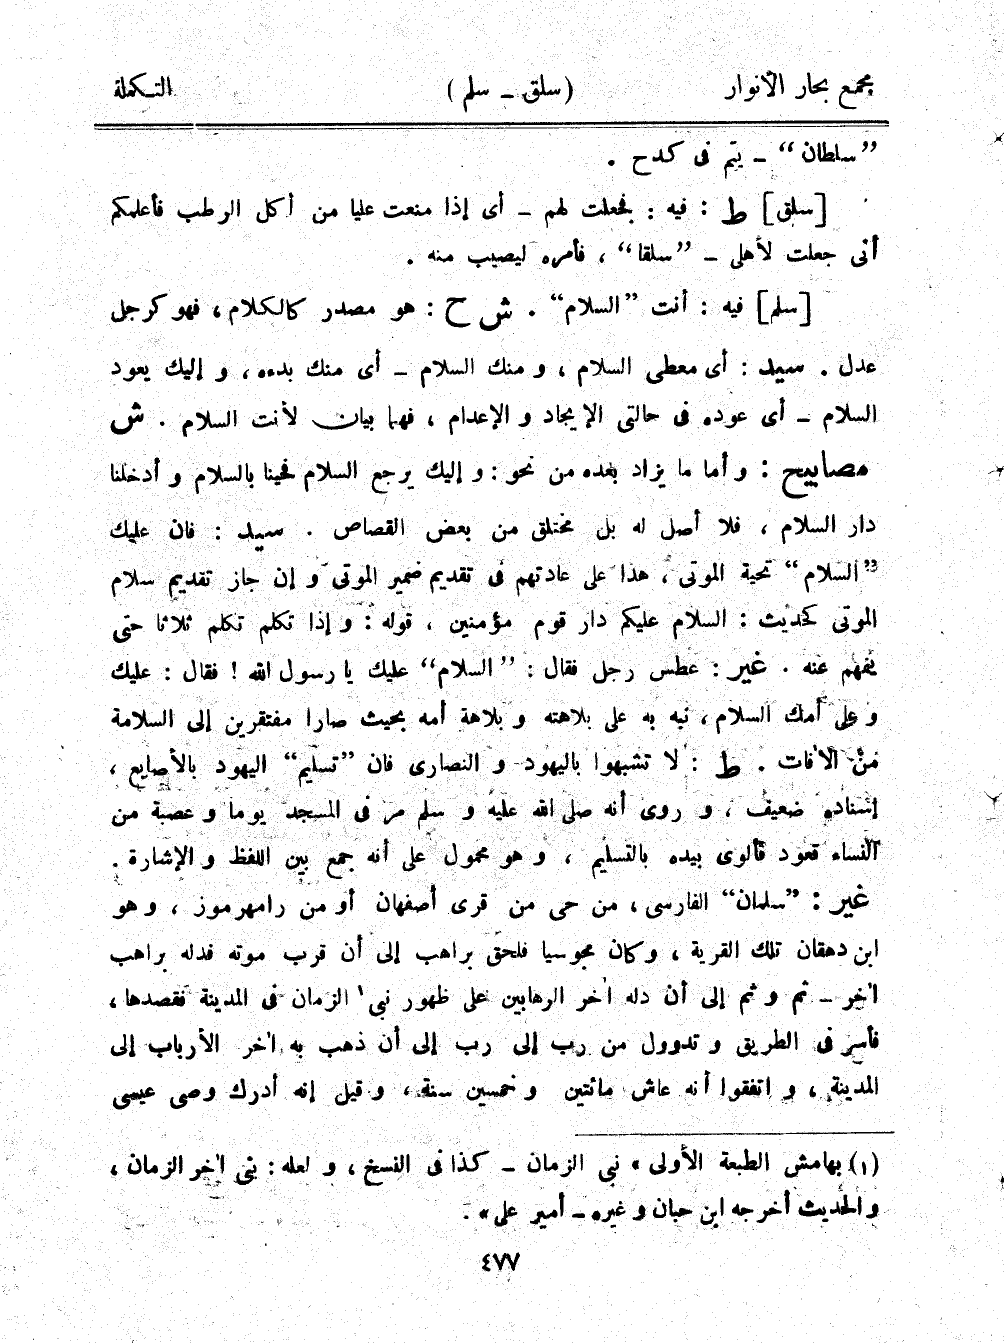 مجمع بحار الأنوار (سلق ـ سلم) التـكملة
”سلطان“ ـ يتم فى كدح .
[سلق] ط : فيه : فجعلت لهم ـ أى إذا منعت عليا من أكل الرطب فأعلمكم
أنى جعلت لأهلى ـ ”سلقا“ ، فأمره ليصيب منه .
[سلم] فيه : أنت ”السلام“ . ش ح : هو مصدر كالكلام، فهو كرجل
عدل . سيد : أى معطى السلام ، و منك السلام ـ أى منك بدءه، و إليك يعود
السلام ـ أى عوده فى حالتى الإيجاد و الإعدام ، فهما بيان لأنت السلام . ش
مصابيح : و أما ما يزاد بعده من نحو : و إليك يرجع السلام فحينا بالسلام و أدخلنا
دار السلام ، فلا أصل له بل مختلق من بعض القصاص . سيد : فان عليك
”السلام“ تحية الموتى ، هذا على عادتهم فى تقديم ضمير الموتى و إن جاز تقديم سلام
الموتى كحديث : السلام عليكم دار قوم مؤمنين ، قوله : و إذا تكلم تكلم ثلاثا حتى
يفهم عنه . غير : عطس رجل فقال : ”السلام“ عليك يا رسول الله ! فقال : عليك
و على أمك السلام، نبه به على بلاهته و بلاهة أمه بحيث صارا مفتقرين إلى السلامة
من الآفات . ط : لا تشبهوا باليهود و النصارى فان ”تسليم“ اليهود بالأصابع ،
إسناده ضعيف ، و روى أنه صلى الله عليه و سلم مر فى المسجد يوما و عصبة من
النساء قعود فألوى بيده بالتسليم ، و هو محمول على أنه جمع بين اللفظ و الإشارة .
غير : ”سلمان“ الفارسى، من حى من قرى أصفهان أو من رامهرموز ، و هو
ابن دهقان تلك القرية ، و كان مجوسيا فلحق براهب إلى أن قرب موته فدله براهب
آخر ـ ثم و ثم إلى أن دله آخر الرهابين على ظهور نبي١ الزمان فى المدينة فقصدها،
فأسر فى الطريق و تدوول من رب إلى رب إلى أن ذهب به آخر الأرباب إلى
المدينة ، و اتفقوا أنه عاش مائتين و خمسين سنة، و قيل إنه أدرك وصى عيسى
(١) بهامش الطبعة الأولى» نبي الزمان ـ كذا فى النسخ، و لعله : نبي آخر الزمان ،
و الحديث أخرجه ابن حبان و غيره ـ أمير على» .
٤٧٧